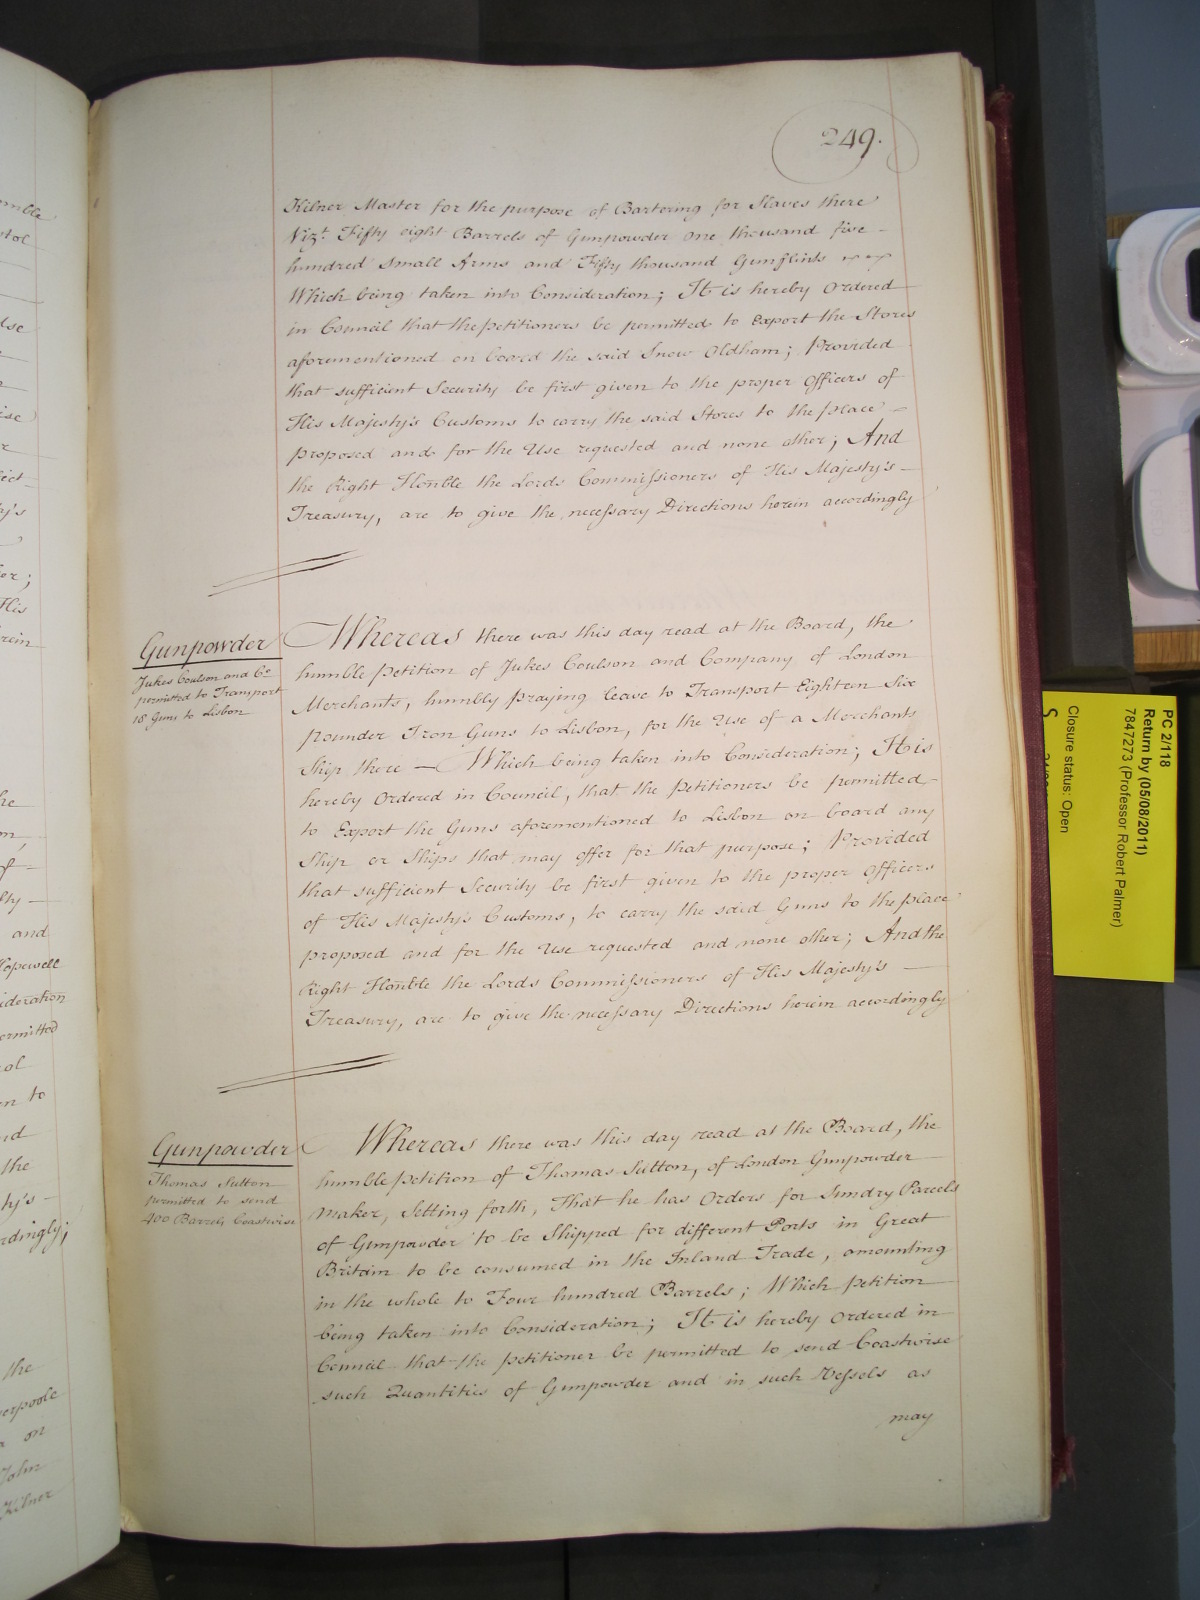 249.
Kilner Master for the purpose of Bartering for Slaves there
Vizt. Fifty eight Barrels of Gunpowder one thousand five
hundred Small Arms and Fifty thousand Gunflints
Which being taken into Consideration; It is hereby Ordered
in Council that the petitioners be permitted to Export the Stores
aforementioned on board the said Snow Oldham; Provided
that sufficient Security be first given to the proper Officers of
His Majesty's Customs to carry the said Stores to the place
proposed and for the Use requested and none other; And
the Right Honble the Lords Commissioners of His Majesty's
Treasury, are to give the necessary Directions herein accordingly
Gunpowder
Jukes Coulson and Co
permitted to Transport
18 Guns to Lisbon
Whereas there was this day read at the Board, the
humble petition of Jukes Coulson and Company of London
Merchants, humbly praying leave to Transport Eighteen Six
pounder Iron Guns to Lisbon, for the Use of a Merchants
Ship there — Which being taken into Consideration; It is
hereby Ordered in Council, that the petitioners be permitted
to Export the Guns aforementioned to Lisbon on board any
Ship or Ships that may offer for that purpose; Provided
that sufficient Security be first given to the proper Officers
of His Majesty's Customs, to carry the said Guns to the place
proposed and for the Use requested and none other; And the
Right Honble the Lords Commissioners of His Majesty's
Treasury, are to give the necessary Directions herein accordingly
Gunpowder
Thomas Sutton
permitted to send
400 Barrels Coastwise
Whereas there was this day read at the Board, the
humble petition of Thomas Sutton, of London Gunpowder
Maker, Setting forth, That he has Orders for Sundry Parcels
of Gunpowder to be Shipped for different Ports in Great
Britain to be consumed in the Inland Trade, amounting
in the whole to Four hundred Barrels; Which petition
being taken into Consideration; It is hereby Ordered in
Council that the petitioner be permitted to send Coastwise
such Quantities of Gunpowder and in such Vessels as
may
and
Hopewell
on to
the
the
on
John
Kilner
PC 2/118
Return by (05/08/2011)
7847273 (Professor Robert Palmer)
Closure status: Open
S